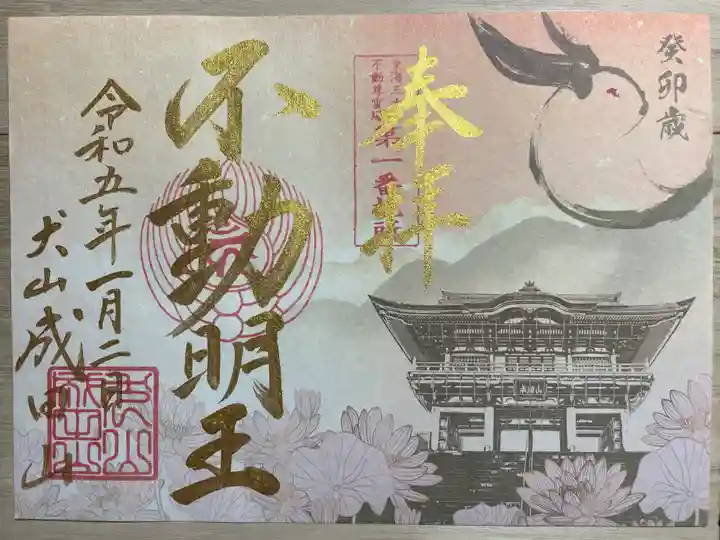 癸卯歳
奉拝
東海三十六
不動尊霊場
第一番札所
不動明王
令和五年一月二日
犬山成田山